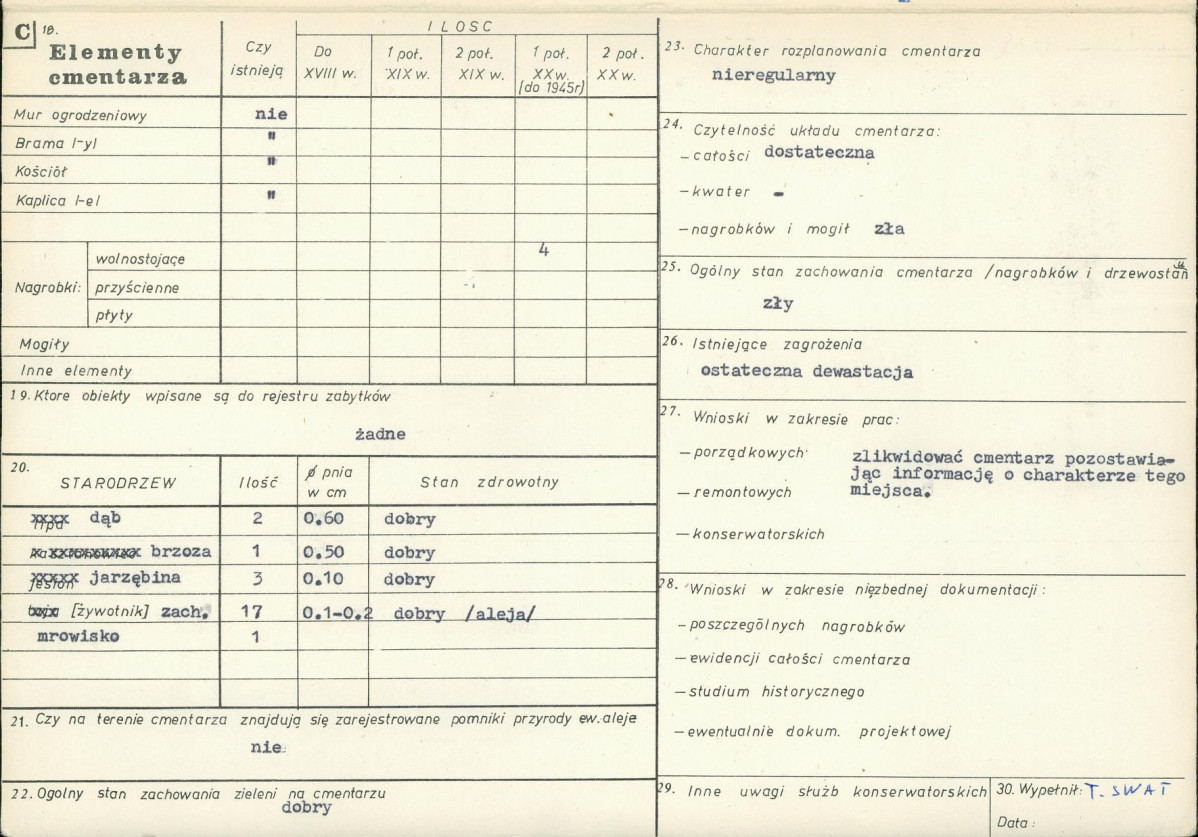 C 18.
Elementy
cmentarza
Czy
istnieją
ILOSC
Do
XVIII w.
1 poł.
XIX w.
2 poł.
XIX w.
1 poł.
XX w.
[do 1945r]
2 poł.
XX w.
Mur ogrodzeniowy nie
Brama l-yl "
Kościół "
Kaplica l-el "
Nagrobki:
wolnostojące 4
przyścienne
płyty
Mogiły
Inne elementy
19. Ktore obiekty wpisane są do rejestru zabytków
żadne
20.
STARODRZEW
Ilość
φ pnia
w cm
Stan zdrowotny
lipa dąb 2 0.60 dobry
kasztanowiec brzoza 1 0.50 dobry
jesion jarzębina 3 0.10 dobry
tuja [żywotnik] zach. 17 0.1-0.2 dobry /aleja/
mrowisko 1
21. Czy na terenie cmentarza znajdują się zarejestrowane pomniki przyrody ew. aleje
nie
22. Ogolny stan zachowania zieleni na cmentarzu
dobry
23. Charakter rozplanowania cmentarza
nieregularny
24. Czytelność układu cmentarza:
- całości dostateczna
- kwater -
- nagrobków i mogił zła
25. Ogólny stan zachowania cmentarza /nagrobków i drzewostanu
zły
26. Istniejące zagrożenia
ostateczna dewastacja
27. Wnioski w zakresie prac:
- porządkowych
- remontowych
- konserwatorskich
zlikwidować cmentarz pozostawia-
jąc informację o charakterze tego
miejsca.
28. Wnioski w zakresie niezbędnej dokumentacji:
- poszczególnych nagrobków
- ewidencji całości cmentarza
- studium historycznego
- ewentualnie dokum. projektowej
29. Inne uwagi służb konserwatorskich
30. Wypełnił: T. SWAT
Data: